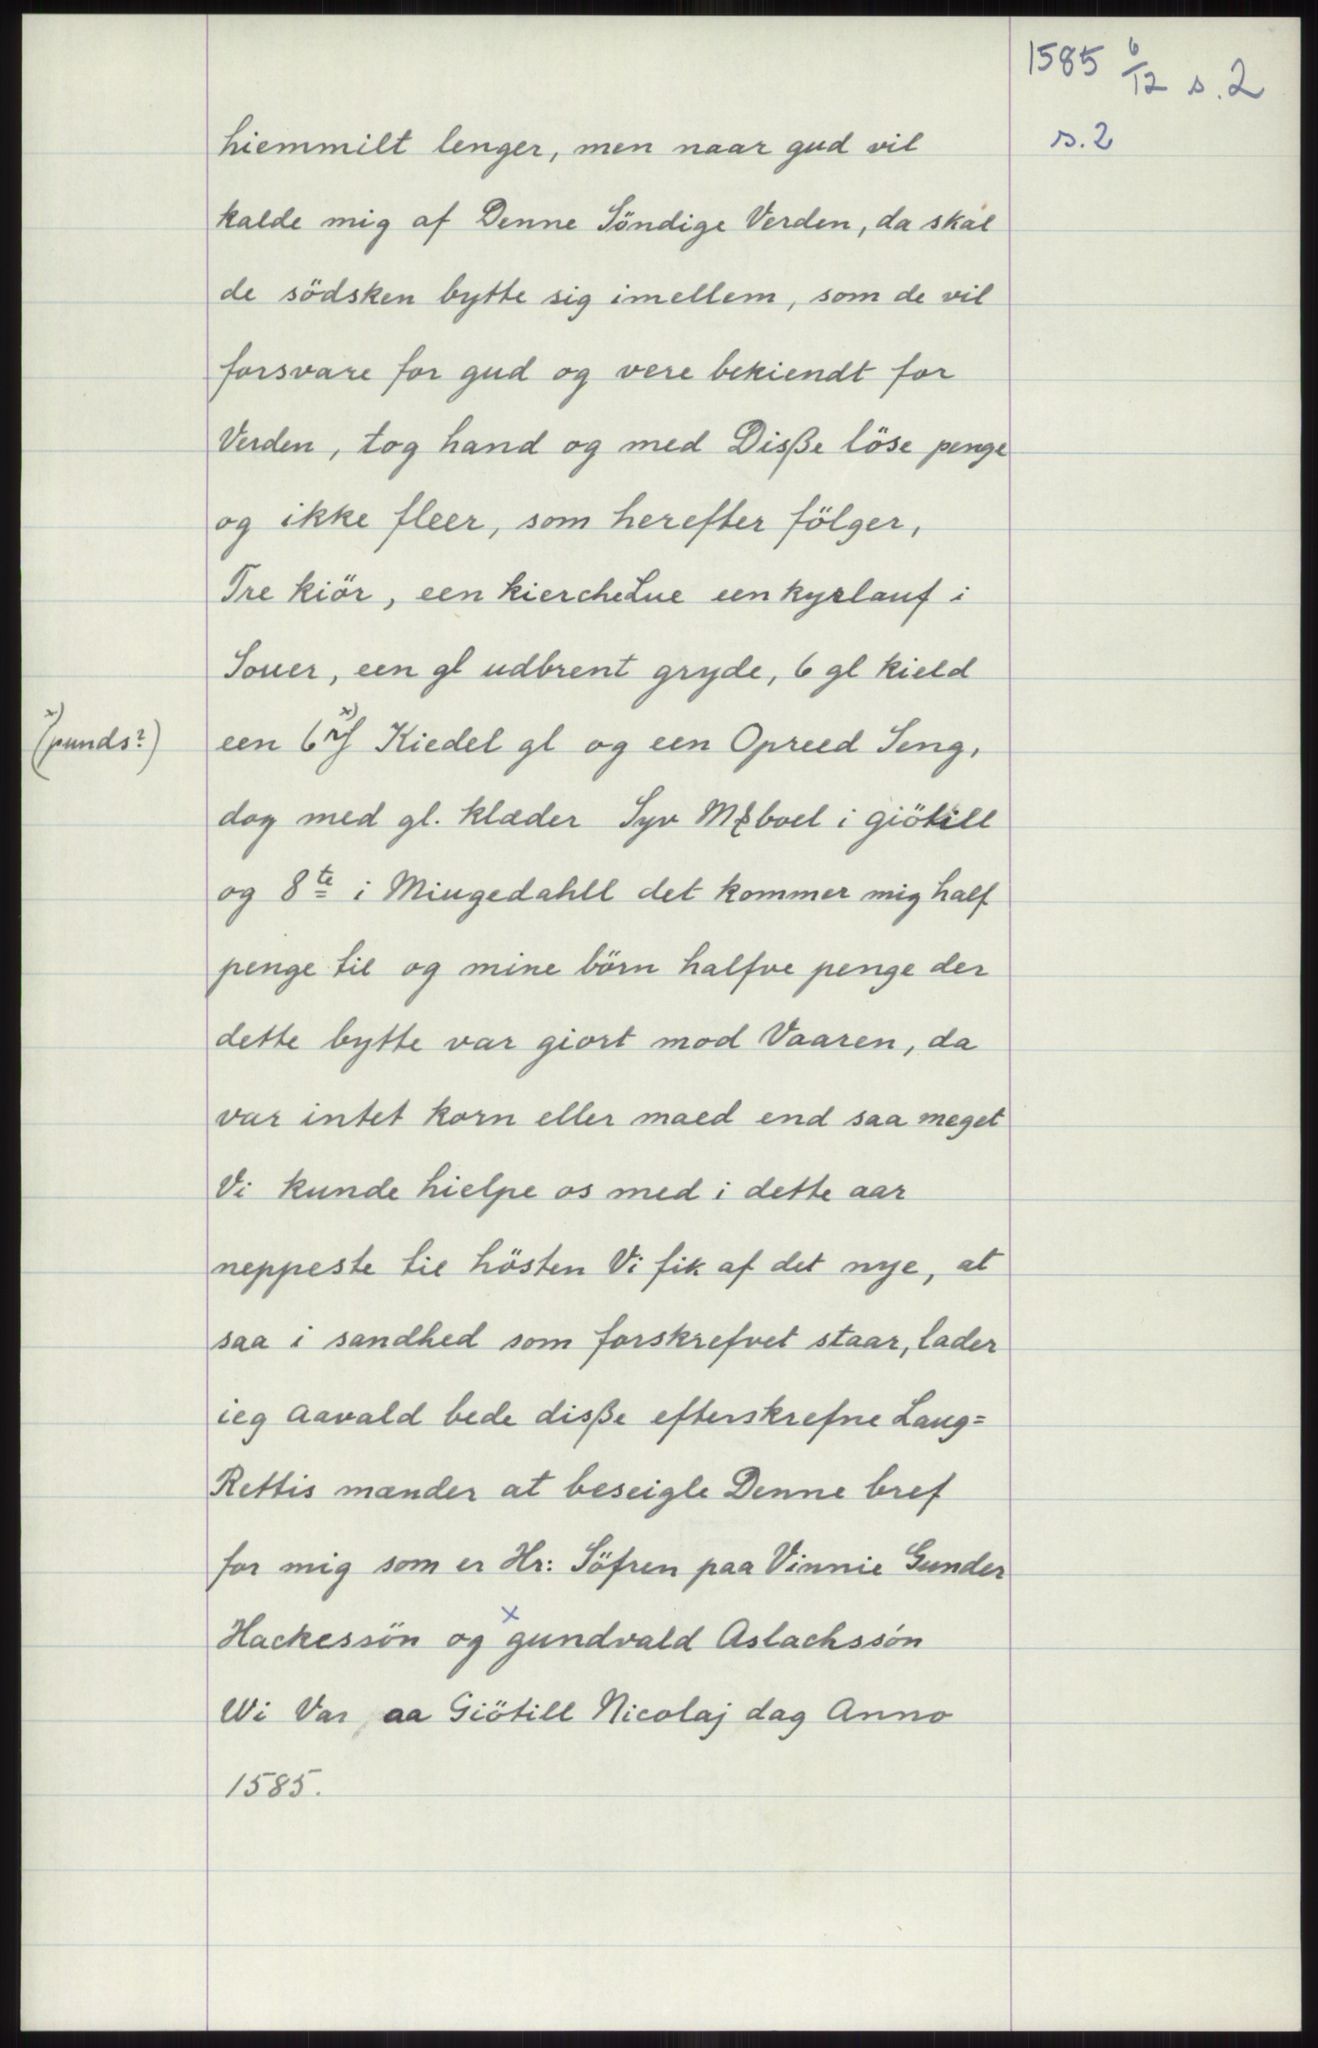 1585 6/12 s. 2
s. 2
hiemmilt lenger, men naar gud vil
kalde mig af Denne Söndige Verden, da skal
de södsken bytte sig imellem, som de vil
forsvare for gud og vere bekiendt for
Verden, tog hand og med Diße löse penge
og ikke fleer, som herefter fölger,
Tre kiör, een kiercheLue een kyrlauf i
Souer, een gl udbrent gryde, 6 gl kield
x) (punds?)
een 6 x) Kiedel gl og een Opreed Seng,
dog med gl. klæder Syv M boel i giötill
og 8te i Miugedahll det kommer mig half
penge til og mine börn halfve penge der
dette bytte var giort mod Vaaren, da
var intet korn eller maed end saa meget
Vi kunde hielpe os med i dette aar
neppeste til hösten Vi fik af det nye, at
saa i sandhed som forskrefvet staar, lader
ieg Aavald bede diße efterskrefne Laug=
Rettis mænder at beseigle Denne bref
for mig som er Hr: Söfren paa Vinnie Gunder
Hackessön og x gundvald Aslachssön
Wi Var aa Giötill Nicolaj dag Anno
1585.